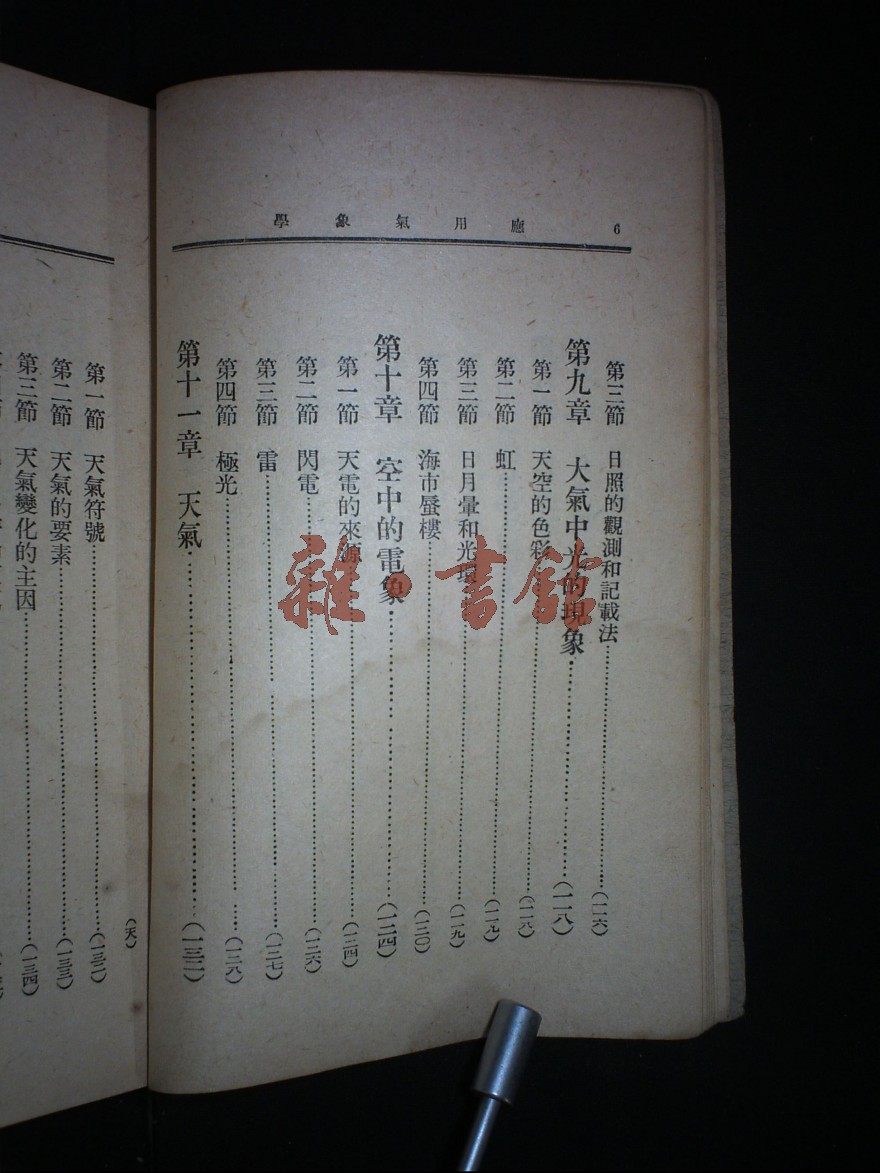 應用氣象學 6
第三節 日照的觀測和記載法……(一一六)
第九章 大氣中光的現象……(一一八)
第一節 天空的色彩……(一一八)
第二節 虹……(一一九)
第三節 日月暈和光環……(一一九)
第四節 海市蜃樓……(一二〇)
第十章 空中的電象……(一二四)
第一節 天電的來源……(一二四)
第二節 閃電……(一二六)
第三節 雷……(一二七)
第四節 極光……(一二八)
第十一章 天氣……(一三二)
(天)
第一節 天氣符號……(一三二)
第二節 天氣的要素……(一三三)
第三節 天氣變化的主因……(一三四)
雜·書館